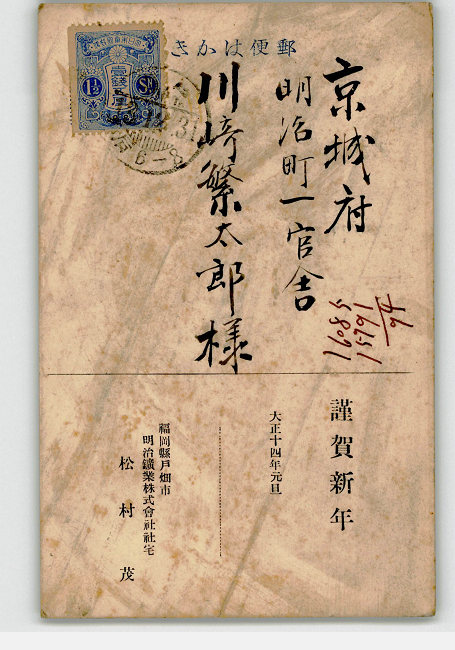 郵便はかき
京城府
明治町一官舎
川崎繁太郎様
謹賀新年
大正十四年元旦
福岡縣戸畑市
明治鑛業株式會社社宅
松村茂
壹錢五厘
1½ Sn